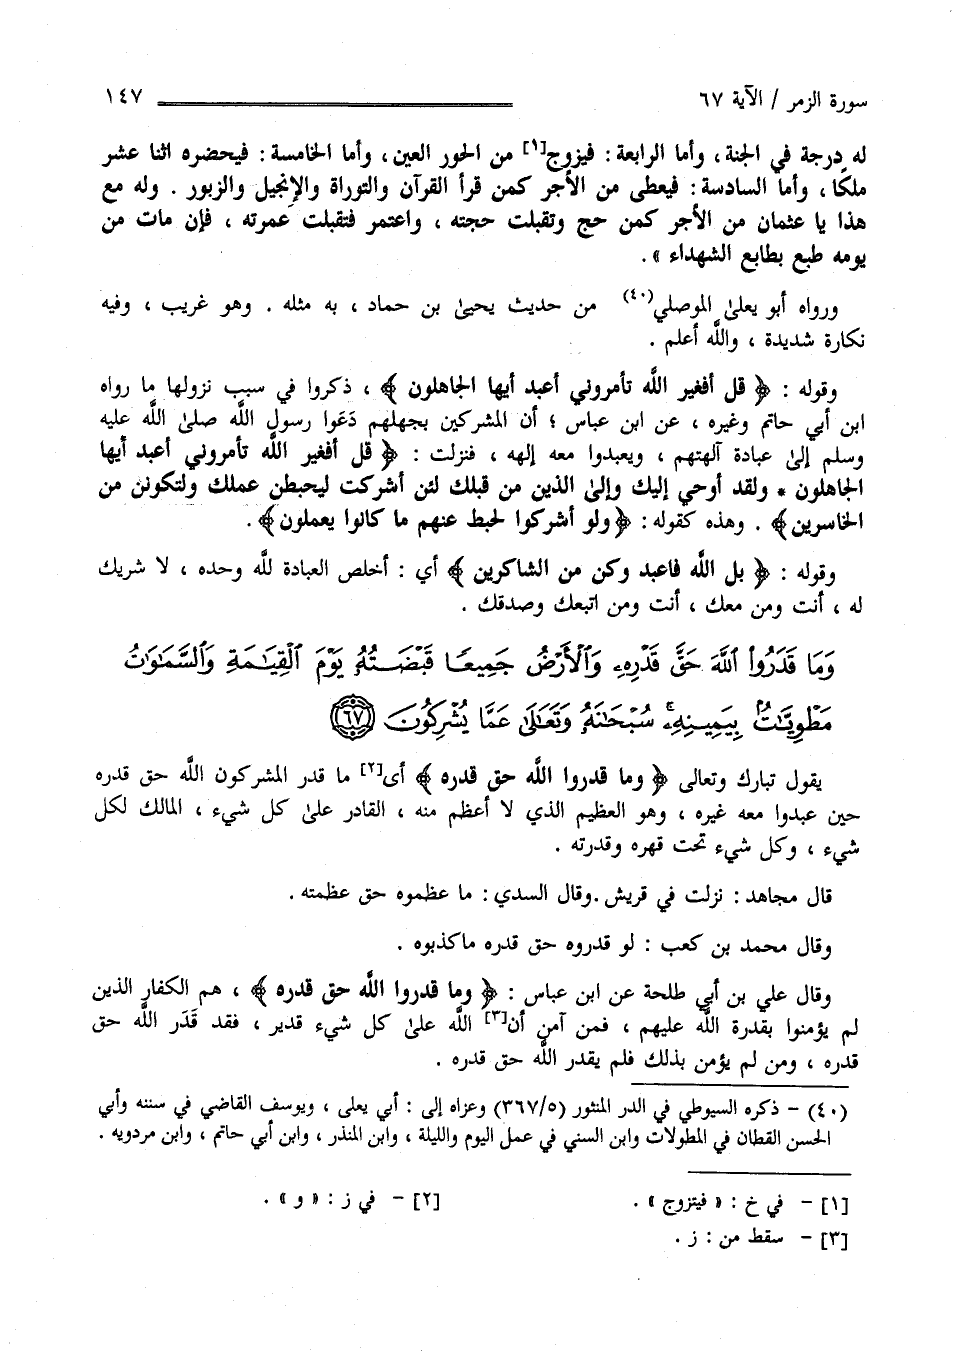 سورة الزمر / الآية ٦٧ ١٤٧
له درجة في الجنة ، وأما الرابعة : فيزوج[١] من الحور العين ، وأما الخامسة : فيحضره اثنا عشر
ملكًا ، وأما السادسة : فيعطى من الأجر كمن قرأ القرآن والتوراة والإنجيل والزبور . وله مع
هذا يا عثمان من الأجر كمن حج وتقبلت حجته ، واعتمر فتقبلت عمرته ، فإن مات من
يومه طبع بطابع الشهداء » .
ورواه أبو يعلىٰ الموصلي(٤٠) من حديث يحيىٰ بن حماد ، به مثله . وهو غريب ، وفيه
نكارة شديدة ، واللَّه أعلم .
وقوله : ﴿ قل أفغير اللَّه تأمروني أعبد أيها الجاهلون ﴾ ، ذكروا في سبب نزولها ما رواه
ابن أبي حاتم وغيره ، عن ابن عباس ؛ أن المشركين بجهلهم دَعَوا رسول اللَّه صلىٰ اللَّه عليه
وسلم إلىٰ عبادة آلهتهم ، ويعبدوا معه إلهه ، فنزلت : ﴿ قل أفغير اللَّه تأمروني أعبد أيها
الجاهلون * ولقد أوحي إليك وإلىٰ الذين من قبلك لئن أشركت ليحبطن عملك ولتكونن من
الخاسرين ﴾ . وهذه كقوله : ﴿ ولو أشركوا لحبط عنهم ما كانوا يعملون ﴾ .
وقوله : ﴿ بل اللَّه فاعبد وكن من الشاكرين ﴾ أي : أخلص العبادة للَّه وحده ، لا شريك
له ، أنت ومن معك ، أنت ومن اتبعك وصدقك .
وَمَا قَدَرُوا۟ ٱللَّهَ حَقَّ قَدْرِهِۦ وَٱلْأَرْضُ جَمِيعًا قَبْضَتُهُۥ يَوْمَ ٱلْقِيَٰمَةِ وَٱلسَّمَٰوَٰتُ
مَطْوِيَّٰتٌۢ بِيَمِينِهِۦ ۚ سُبْحَٰنَهُۥ وَتَعَٰلَىٰ عَمَّا يُشْرِكُونَ ٦٧
يقول تبارك وتعالى ﴿ وما قدروا اللَّه حق قدره ﴾ أى[٢] ما قدر المشركون اللَّه حق قدره
حين عبدوا معه غيره ، وهو العظيم الذي لا أعظم منه ، القادر علىٰ كل شيء ، المالك لكل
شيء ، وكل شيء تحت قهره وقدرته .
قال مجاهد : نزلت في قريش . وقال السدي : ما عظموه حق عظمته .
وقال محمد بن كعب : لو قدروه حق قدره ماكذبوه .
وقال علي بن أبي طلحة عن ابن عباس : ﴿ وما قدروا اللَّه حق قدره ﴾ ، هم الكفار الذين
لم يؤمنوا بقدرة اللَّه عليهم ، فمن آمن أن[٣] اللَّه علىٰ كل شيء قدير ، فقد قَدَر اللَّه حق
قدره ، ومن لم يؤمن بذلك فلم يقدر اللَّه حق قدره .
(٤٠) - ذكره السيوطي في الدر المنثور (٣٦٧/٥) وعزاه إلى : أبي يعلى ، ويوسف القاضي في سننه وأبي
الحسن القطان في المطولات وابن السني في عمل اليوم والليلة ، وابن المنذر ، وابن أبي حاتم ، وابن مردويه .
[١] - في خ : « فيتزوج » . [٢] - في ز : « و » .
[٣] - سقط من : ز .